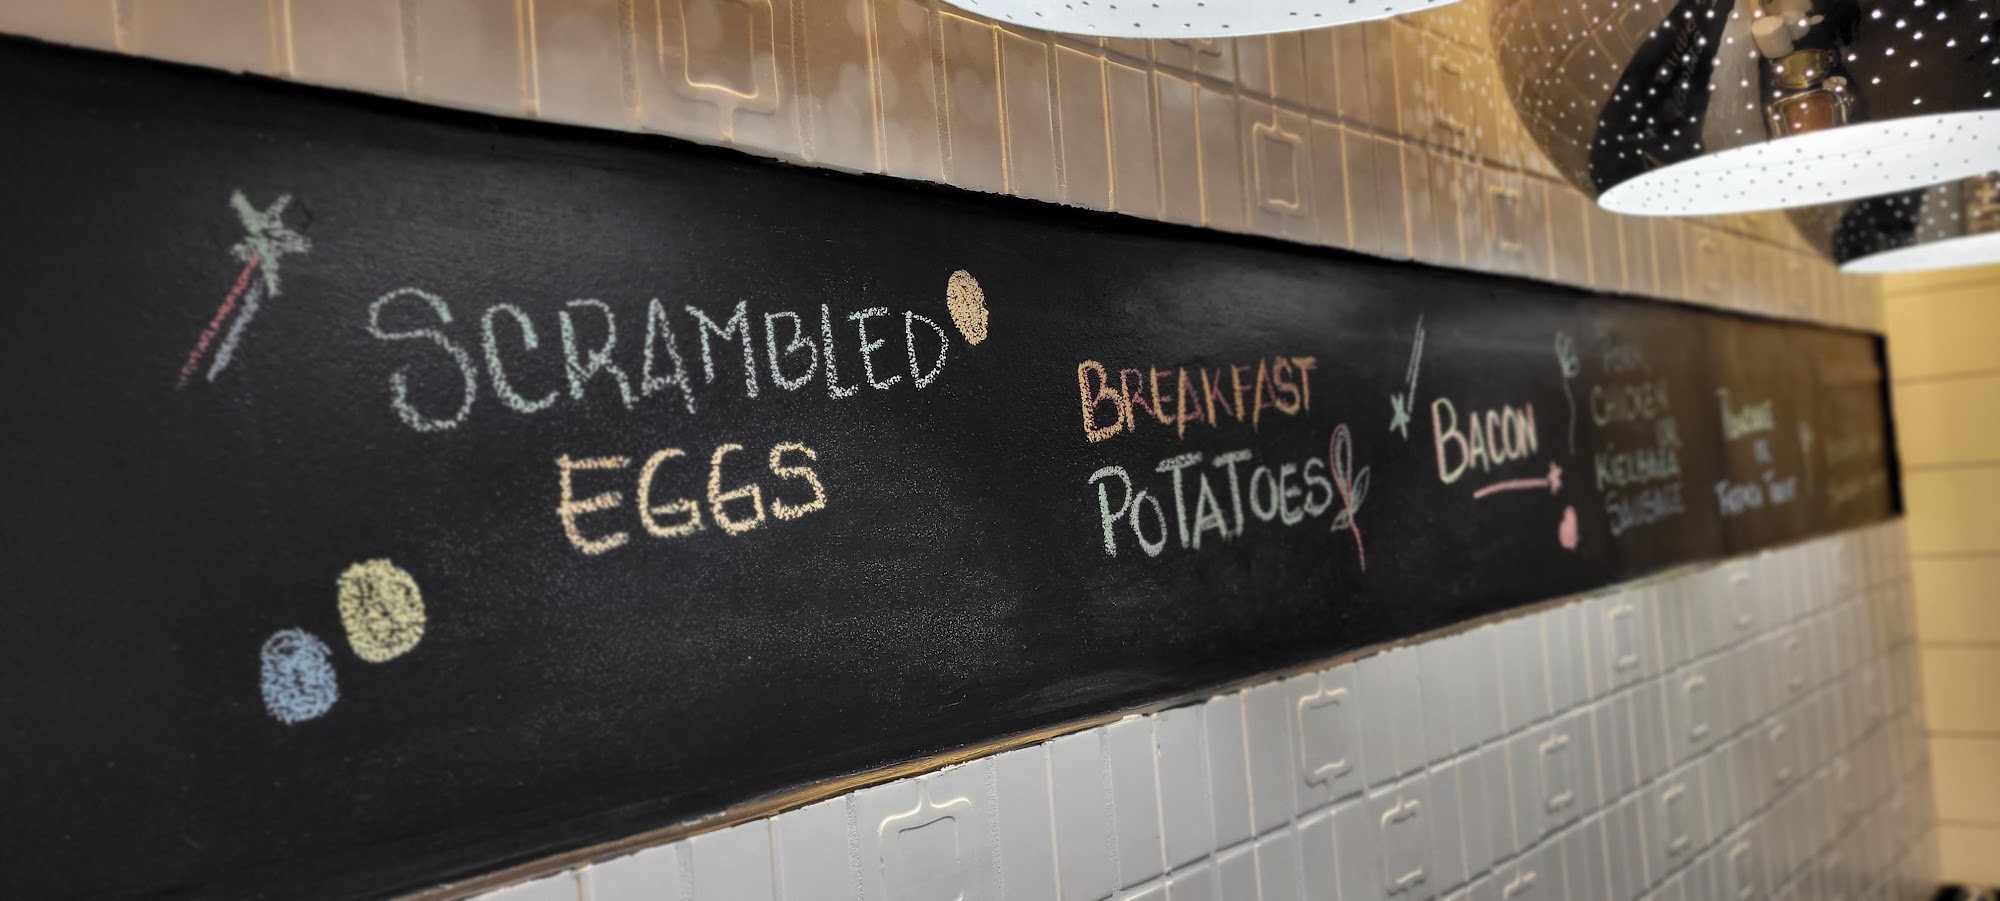 SCRAMBLED
EGGS
BREAKFAST
POTATOES
BACON
PORK,
CHICKEN
OR
KIELBASA
SAUSAGE
PANCAKE
OR
FRENCH TOAST